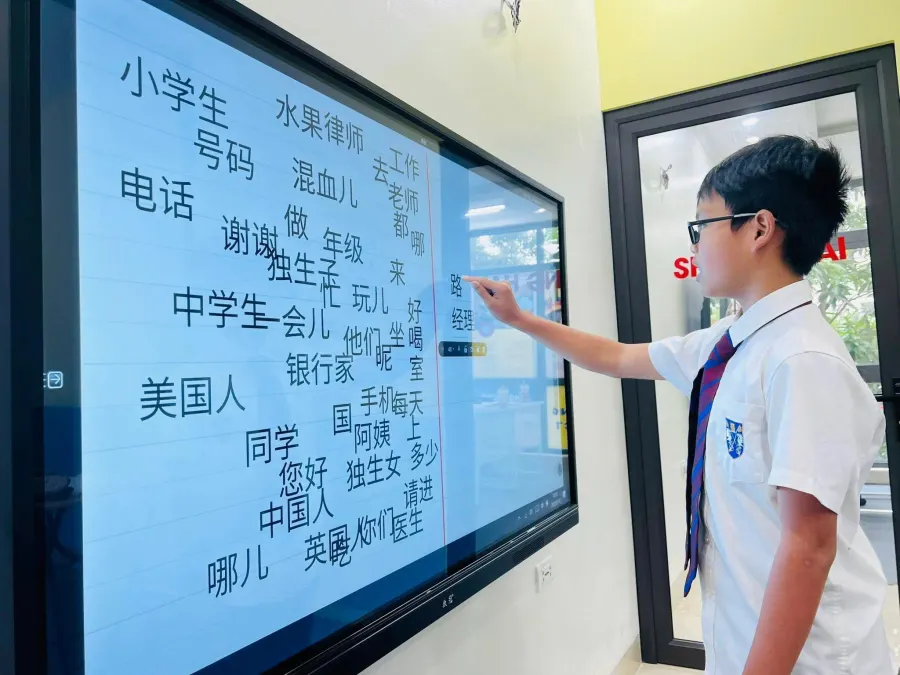 小学生
水果律师
工作
号码
混血儿
去
老师
电话
做
都
谢谢
年级
哪
独生子
来
忙
玩儿
路
中学生
一会儿
好
经理
他们
坐
喝
银行家
呢
室
美国人
手机
每天
国
阿姨
上
同学
独生女
多少
您好
请进
中国人
英国人
你们
医生
哪儿